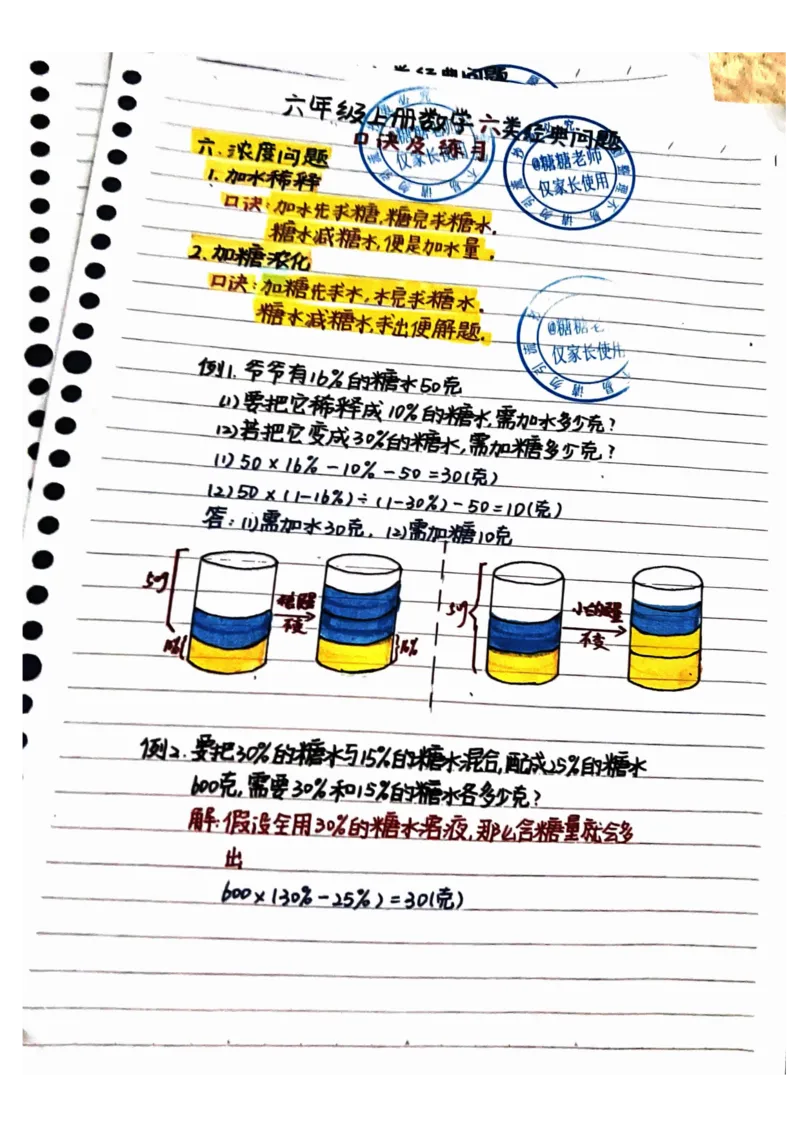 六年级上册数学六类经典问题
口诀及练习
@糖糖老师
仅家长使用
六.浓度问题
1.加水稀释
口诀:加水先求糖,糖完求糖水.
糖水减糖水,便是加水量.
2.加糖浓化
口诀:加糖先求水,水完求糖水.
糖水减糖水,求出便解题.
@糖糖老
仅家长使用
例1.爷爷有16%的糖水50克
(1)要把它稀释成10%的糖水,需加水多少克?
(2)若把它变成30%的糖水,需加糖多少克?
(1)50×16%-10%-50=30(克)
(2)50×(1-16%)÷(1-30%)-50=10(克)
答:(1)需加水30克,(2)需加糖10克
50g
不变
16%
16%
50g
不变
例2.要把30%的糖水与15%的糖水混合,配成25%的糖水
600克,需要30%和15%的糖水各多少克?
解:假设全用30%的糖水溶液,那么含糖量就会多
出
600×(30%-25%)=30(克)